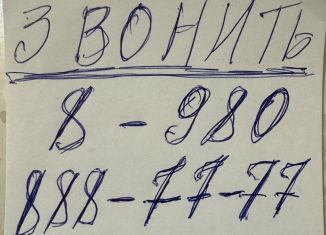 ЗВОНИТЬ
8-980
888-77-77